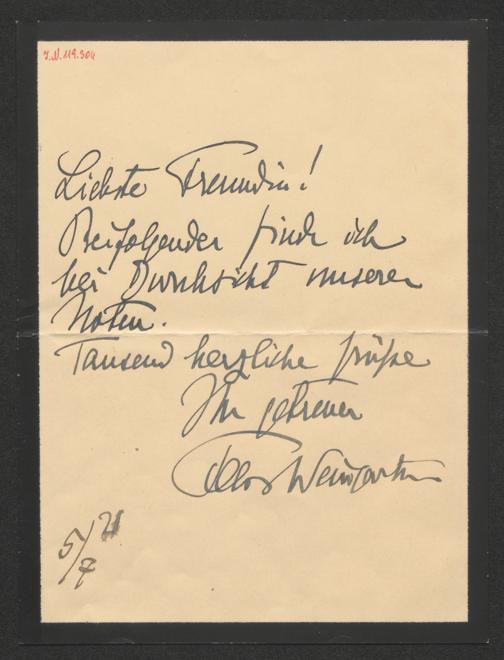 I.N. 119.304
Liebste Freundin!
Beifolgendes finde ich
bei Durchsicht unserer
Noten.
Tausend herzliche Grüße
Ihr getreuer
Weingartner
5/7 21